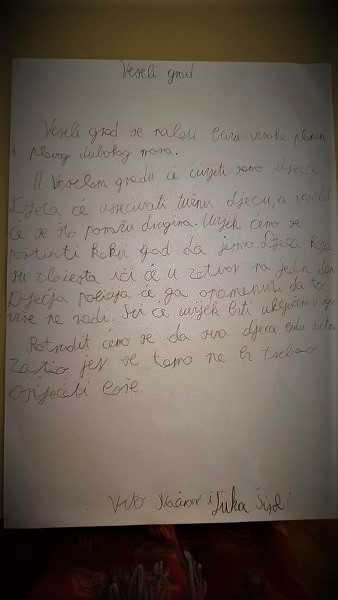 Veseli grad
Veseli grad se nalazi visoke planine
i plavog dubokog mora.
U Veselom gradu će živjeti samo djeca
Djeca će usrećivati tužnu djecu, a veselit
će se što pomažu drugima. Uvijek ćemo se
poštivati kakvi god da jesmo. Djeca koja
su zločesta ići će u zatvor na jedan dan
Dječja policija će ga opomenuti da to
više ne radi. Svi će uvijek biti uključeni u
Potrudit ćemo se da sva djeca budu sretna
Zato jer se tamo ne bi trebao
osjećati loše.
Vito i Luka